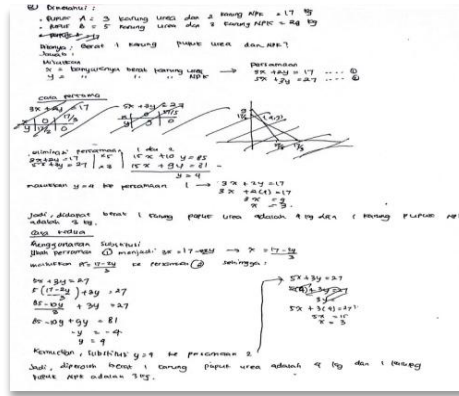 Diketahui :
- Rumor A : 3 karung urea dan 2 karung NPK = 17 kg
- Rumor B = 5 karung urea dan 3 karung NPK = 27 kg
Ditanya : Berat 1 karung pupuk urea dan NPK?
Jawab :
Misalkan
x = banyaknya berat karung urea → persamaan
y = " " " NPK
3x + 2y = 17 .... ①
5x + 3y = 27 .... ②
cara pertama
3x + 2y = 17
5x + 3y = 27
eliminasi persamaan 1 dan 2
3x + 2y = 17 | ×5 | 15x + 10y = 85
5x + 3y = 27 | ×3 | 15x + 9y = 81 -
y = 4
masukkan y = 4 ke persamaan 1 → 3x + 2y = 17
3x + 2(4) = 17
3x = 9
x = 3
Jadi, didapat berat 1 karung pupuk urea adalah 4 kg dan 1 karung pupuk
adalah 3 kg.
Cara kedua
Menggunakan Substitusi
Ubah persamaan ① menjadi 3x = 17 - 2y → x = 17-2y/3
masukkan x = 17-2y/3 ke persamaan ② sehingga :
5x + 3y = 27
5(17-2y/3) + 3y = 27
85-10y/3 + 3y = 27
85 - 10y + 9y = 81
-y = -4
y = 4
Kemudian, substitusi y = 4 ke persamaan 2
5x + 3y = 27
5x + 3(4) = 27
5x = 15
x = 3
Jadi, diperoleh berat 1 karung pupuk urea adalah 4 kg dan 1 karung
pupuk NPK adalah 3 kg.